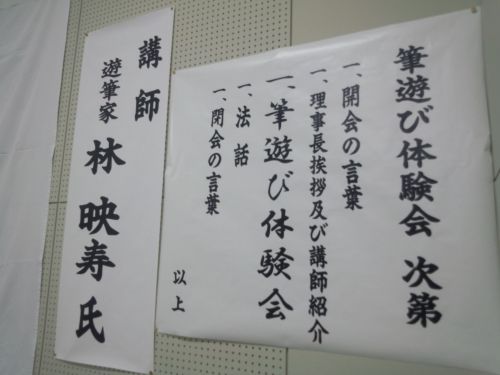 筆遊び体験会 次第
一、開会の言葉
一、理事長挨拶及び講師紹介
一、筆遊び体験会
一、法話
一、閉会の言葉
以上
講師
遊筆家 林 映寿 氏